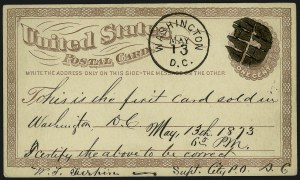 United States
POSTAL CARD
WASHINGTON
MAY
13
D.C.
WRITE THE ADDRESS ONLY ON THIS SIDE-THE MESSAGE ON THE OTHER
This is the first card sold in
Washington D C May, 13th 1873
6 PM.
I certify the above to be correct
Supt. City, P.O. D C